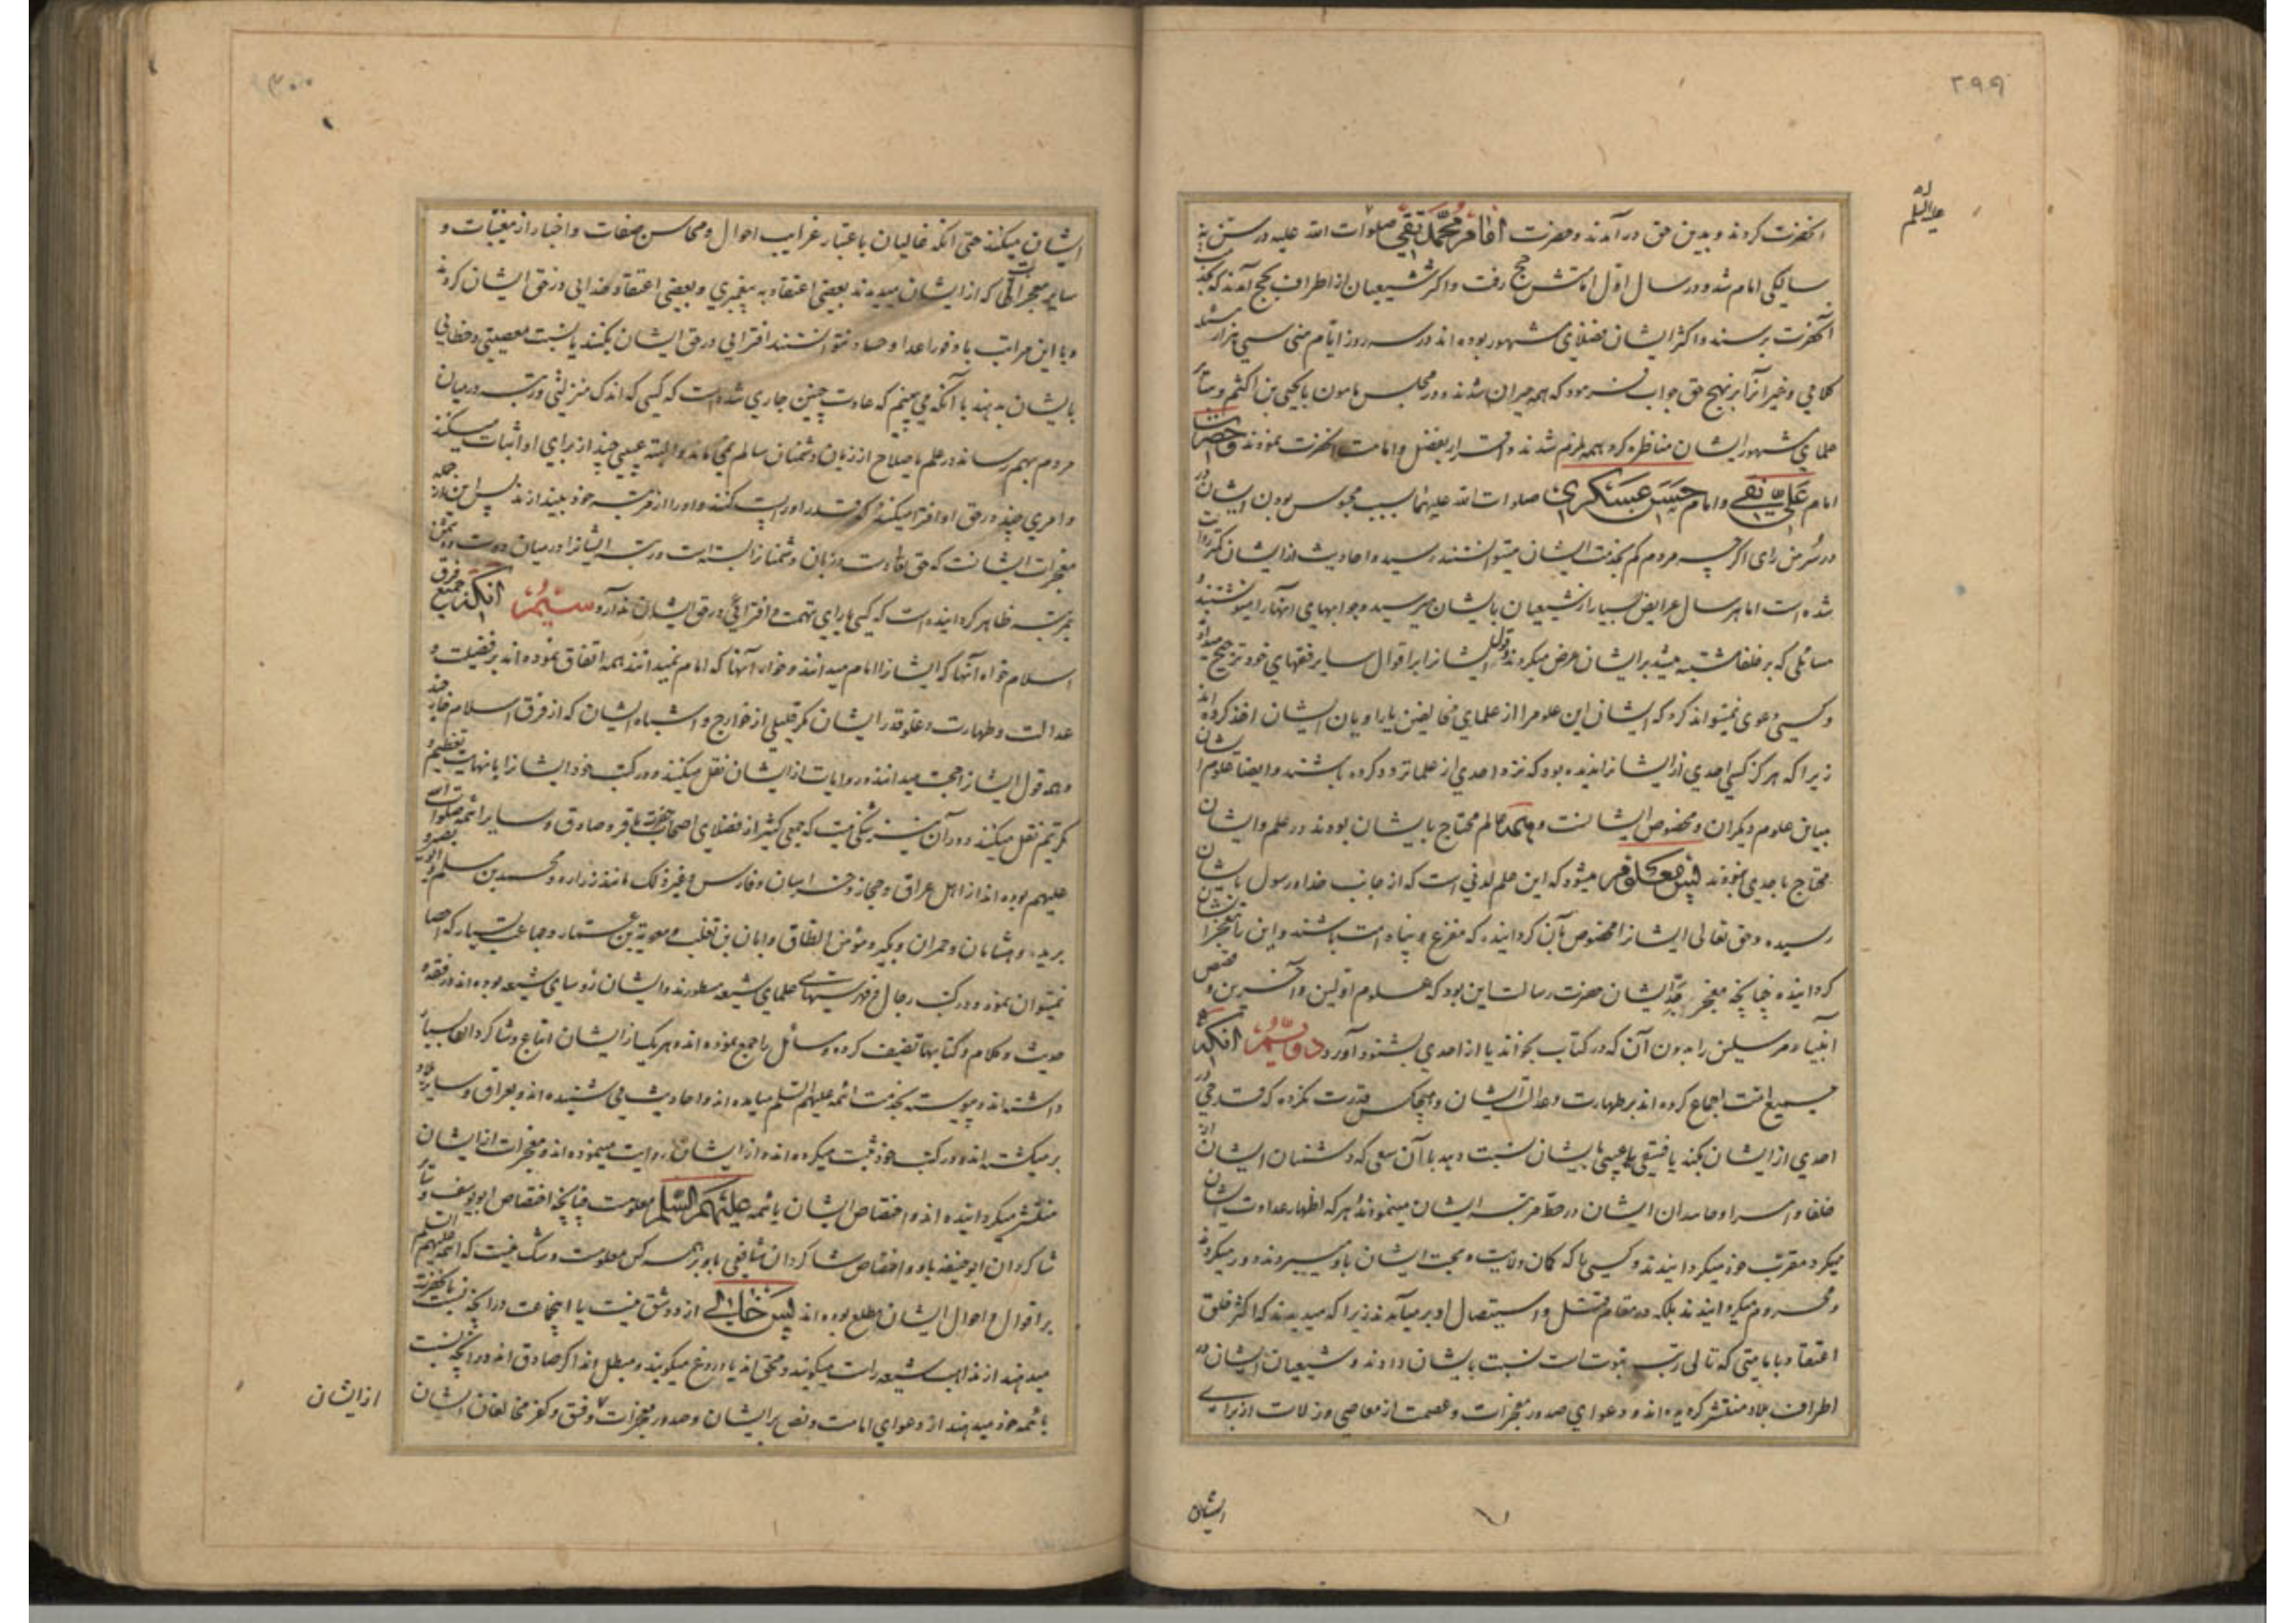 ۲۹۹
علیه السلام
آنحضرت کردند و بدین حق درآمدند و حضرت امام محمد تقی صلوات الله علیه در سن نه
سالگی امام شد و در سال اول امامتش حج رفت و اکثر شیعیان از اطراف بحج آمدند که بخدمت
آنحضرت برسند و اکثر ایشان فضلای مشهور بوده اند در سه روز ایام منی سی هزار مسئله
کلامی و غیر آنرا بر نهج حق جواب فرمود که همه حیران شدند و در مجلس مامون با یحیی بن اکثم و سایر
علمای مشهور ایشان مناظره کرد همه ملزم شدند و اقرار بفضل و امامت آنحضرت نمودند و حضرت
امام علی نقی و امام حسن عسکری صلوات الله علیهما بسبب محبوس بودن ایشان در
در سُرّ من رای اگرچه مردم کم بخدمت ایشان میتوانستند رسید و احادیث از ایشان کمتر روایت
شده است اما هر سال عرایض بسیار از شیعیان بایشان میرسید و جوابهای آنها را مینوشتند و
مسائلی که بر خلفا مشتبه میشد بر ایشان عرض میکردند و قول ایشانرا بر اقوال سایر فقهای خود ترجیح میدادند
و کسی دعوی نمیتواند کرد که ایشان این علوم را از علمای مخالفین یا راویان ایشان اخذ کرده اند
زیرا که هرگز کسی احدی از ایشانرا ندیده بود که نزد احدی از علما تردد کرده باشند و ایضا علوم ایشان
مباین علوم دیگران و مخصوص ایشانست و همه عالم محتاج بایشان بودند در علم و ایشان
محتاج باحدی نبودند پس معلوم میشود که این علم لدنی است که از جانب خدا و رسول بایشان
رسیده و حق تعالی ایشانرا مخصوص بآن گردانیده که مفزع و پناه امت باشند و این را معجز ایشان
گردانیده چنانچه معجز جدّ ایشان حضرت رسالت این بود که علوم اولین و آخرین و قصص
انبیا و مرسلین را بدون آن که در کتاب بخواند یا از احدی بشنود آورد دویّم آنکه
جمیع امت اجماع کرده اند بر طهارت و عدالت ایشان و هیچکس قدرت نکرده که قدحی در
احدی از ایشان بکند یا فسقی یا عیبی بایشان نسبت دهد با آن سعی که دشمنان ایشان از
خلفا و امرا و حاسدان ایشان در حطّ مرتبه ایشان مینمودند و هرکه اظهار عداوت ایشان
میکرد مقرب خود میگردانیدند و کسی را که گمان ولایت و محبت ایشان باو میبردند دور میکردند
و محروم میگردانیدند بلکه در مقام قتل و استیصال او بر میآمدند زیرا که میدیدند که اکثر خلق
اعتقاد بامامتی که تالی رتبه نبوتست نسبت بایشان دارند و شیعیان ایشان در
اطراف بلاد منتشر گردیده اند و دعوای صدور معجزات و عصمت از معاصی و زلات از برای
ایشان
۳۰۰
ایشان میکنند حتی آنکه غالیان باعتبار غرایب احوال و محاسن صفات و اخبار از مغیبات و
سایر معجزاتی که از ایشان میدیدند بعضی اعتقاد به پیغمبری و بعضی اعتقاد خدایی در حق ایشان کردند
و با این مراتب با وفور اعدا و حساد نتوانستند افترایی در حق ایشان بکنند یا نسبت معصیتی و خطایی
بایشان بدهند با آنکه می بینیم که عادت چنین جاری شده است که کسی که اندک منزلتی و رتبه در میان
مردم بهم رساند در علم یا صلاح از زبان دشمنان سالم نمی ماند و البته عیبی چند از برای او اثبات میکنند
و امری چند در حق او افترا میکنند که قدر او را پست کنند و او را از مرتبه خود بیندازند پس این از جمله
معجزات ایشانست که حق تعالی دست و زبان دشمنانرا بسته است و رتبه ایشانرا در میان دوست و دشمن
بمرتبه ظاهر گردانیده است که کسی یارای تهمت و افترائی در حق ایشان ندارد سیّم آنکه جمیع فرق
اسلام خواه آنها که ایشانرا امام میدانند و خواه آنها که امام نمیدانند همه اتفاق نموده اند بر فضیلت و
عدالت و طهارت و علو قدر ایشان مگر قلیلی از خوارج و اشباه ایشان که از فرق اسلام خارجند
و همه قول ایشانرا حجت میدانند و روایات از ایشان نقل میکنند و در کتب خود ایشانرا با نهایت تعظیم و
تکریم نقل میکنند و در آن نیز شکی نیست که جمعی کثیر از فضلای اصحاب حضرت باقر و صادق و سایر ائمه صلوات الله
علیهم بوده اند از اهل عراق و حجاز و خراسان و فارس و غیر ذلک مانند زراره و محمد بن مسلم و ابو بصیر و
برید و هشامان و حمران و بکیر و مؤمن الطاق و ابان بن تغلب و معویة بن عمار و جماعت بسیار که احصا
نمیتوان نمود و در کتب رجال و فهرستهای علمای شیعه مسطورند و ایشان رؤسای شیعه بوده اند در فقه و
حدیث و کلام و کتابها تصنیف کرده و مسائل را جمع نموده اند و هریک از ایشان اتباع و شاگردان بسیار
داشته اند و پیوسته بخدمت ائمه علیهم السلم میآمده اند و احادیث می شنیده اند و بعراق و سایر بلاد
برمیگشته اند و در کتب خود ثبت میکرده اند و از ایشان روایت مینموده اند و معجزات از ایشان
منتشر میگردانیده اند و اختصاص ایشان بائمه علیهم السلم معلومست چنانچه اختصاص ابو یوسف و سایر
شاگردان ابو حنیفه باو و اختصاص شاگردان شافعی باو بر همه کس معلومست و شک نیست که ائمه علیهم السلم
بر اقوال و احوال ایشان مطلع بوده اند پس خالی از دو شق نیست یا اینجماعت در آنچه نسبت بآنحضرت
میدهند از مذاهب شیعه راست میگویند و محق اند یا دروغ میگویند و مبطل اند اگر صادق اند در آنچه نسبت
بائمه خود میدهند از دعوای امامت و نص بر ایشان و صدور معجزات و فسق و کفر مخالفان ایشان
از ایشان